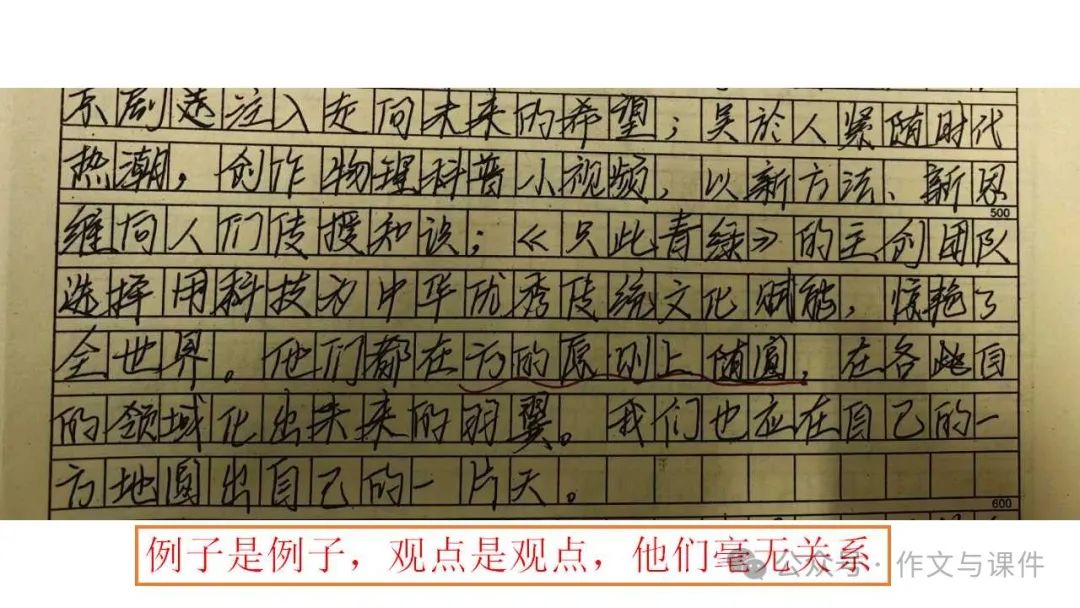 京剧选注入走向未来的希望；吴於人紧随时代
热潮，创作物理科普小视频，以新方法、新思
500
维向人们传授知识；《只此青绿》的主创团队
选择用科技为中华优秀传统文化赋能，惊艳了
全世界。他们都在方的原则上随圆，在各自
的领域化出未来的羽翼。我们也应在自己的一
方地圆出自己的一片天。
600
例子是例子，观点是观点，他们毫无关系
公众号·作文与课件